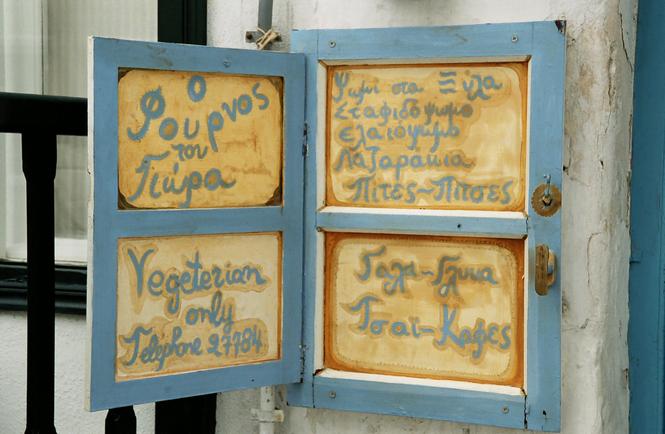 Ο
Φουρνος
του
Γιώρα
Vegeterian
only
Telephone 27784
Ψωμι στα Ξύλα
Σταφιδόψωμο
Ελαιόψωμο
Λαζαρακια
Πίτες~Πίτσες
Γαλα-Γλυκα
Τσαϊ-Καφες